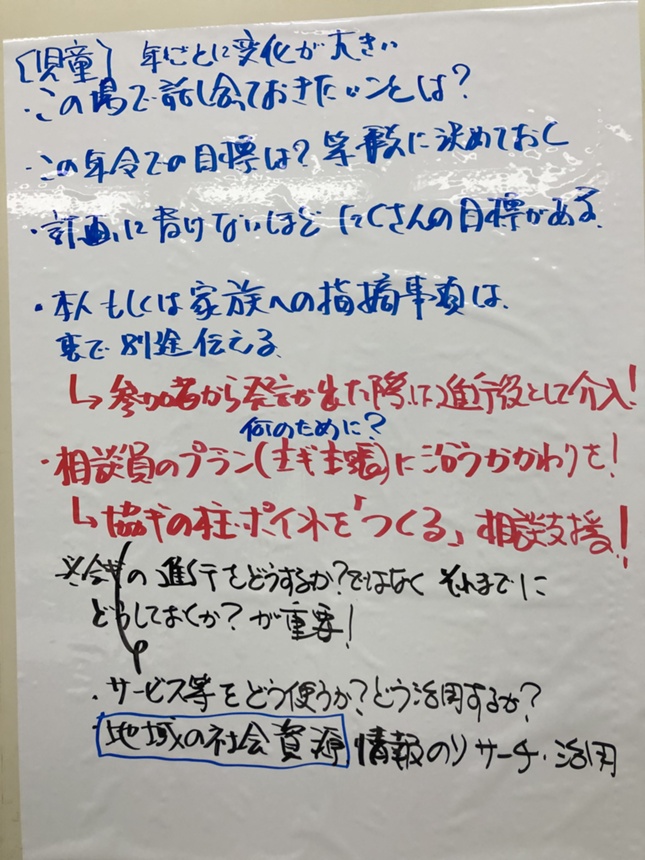 [児童] 年ごとに変化が大きい
・この場で話し会ておきたいことは?
・この年令での目標は? に決めておく
・計画に書けないほど たくさんの目標がある.
・本人もしくは家族への指摘事項は、
裏で別途伝える.
↳参加者から発言が出た際は、進行役として介入!
何のために?
・相談員のプラン( )に沿うかかわりを!
↳協ギの柱・ポイントを「つくる」相談支援!
※会ギの進行をどうするか?ではなく それまでに
どうしておくか? が重要!
・サービス等をどう使うか?どう活用するか?
地域の社会資源 情報のリサーチ・活用